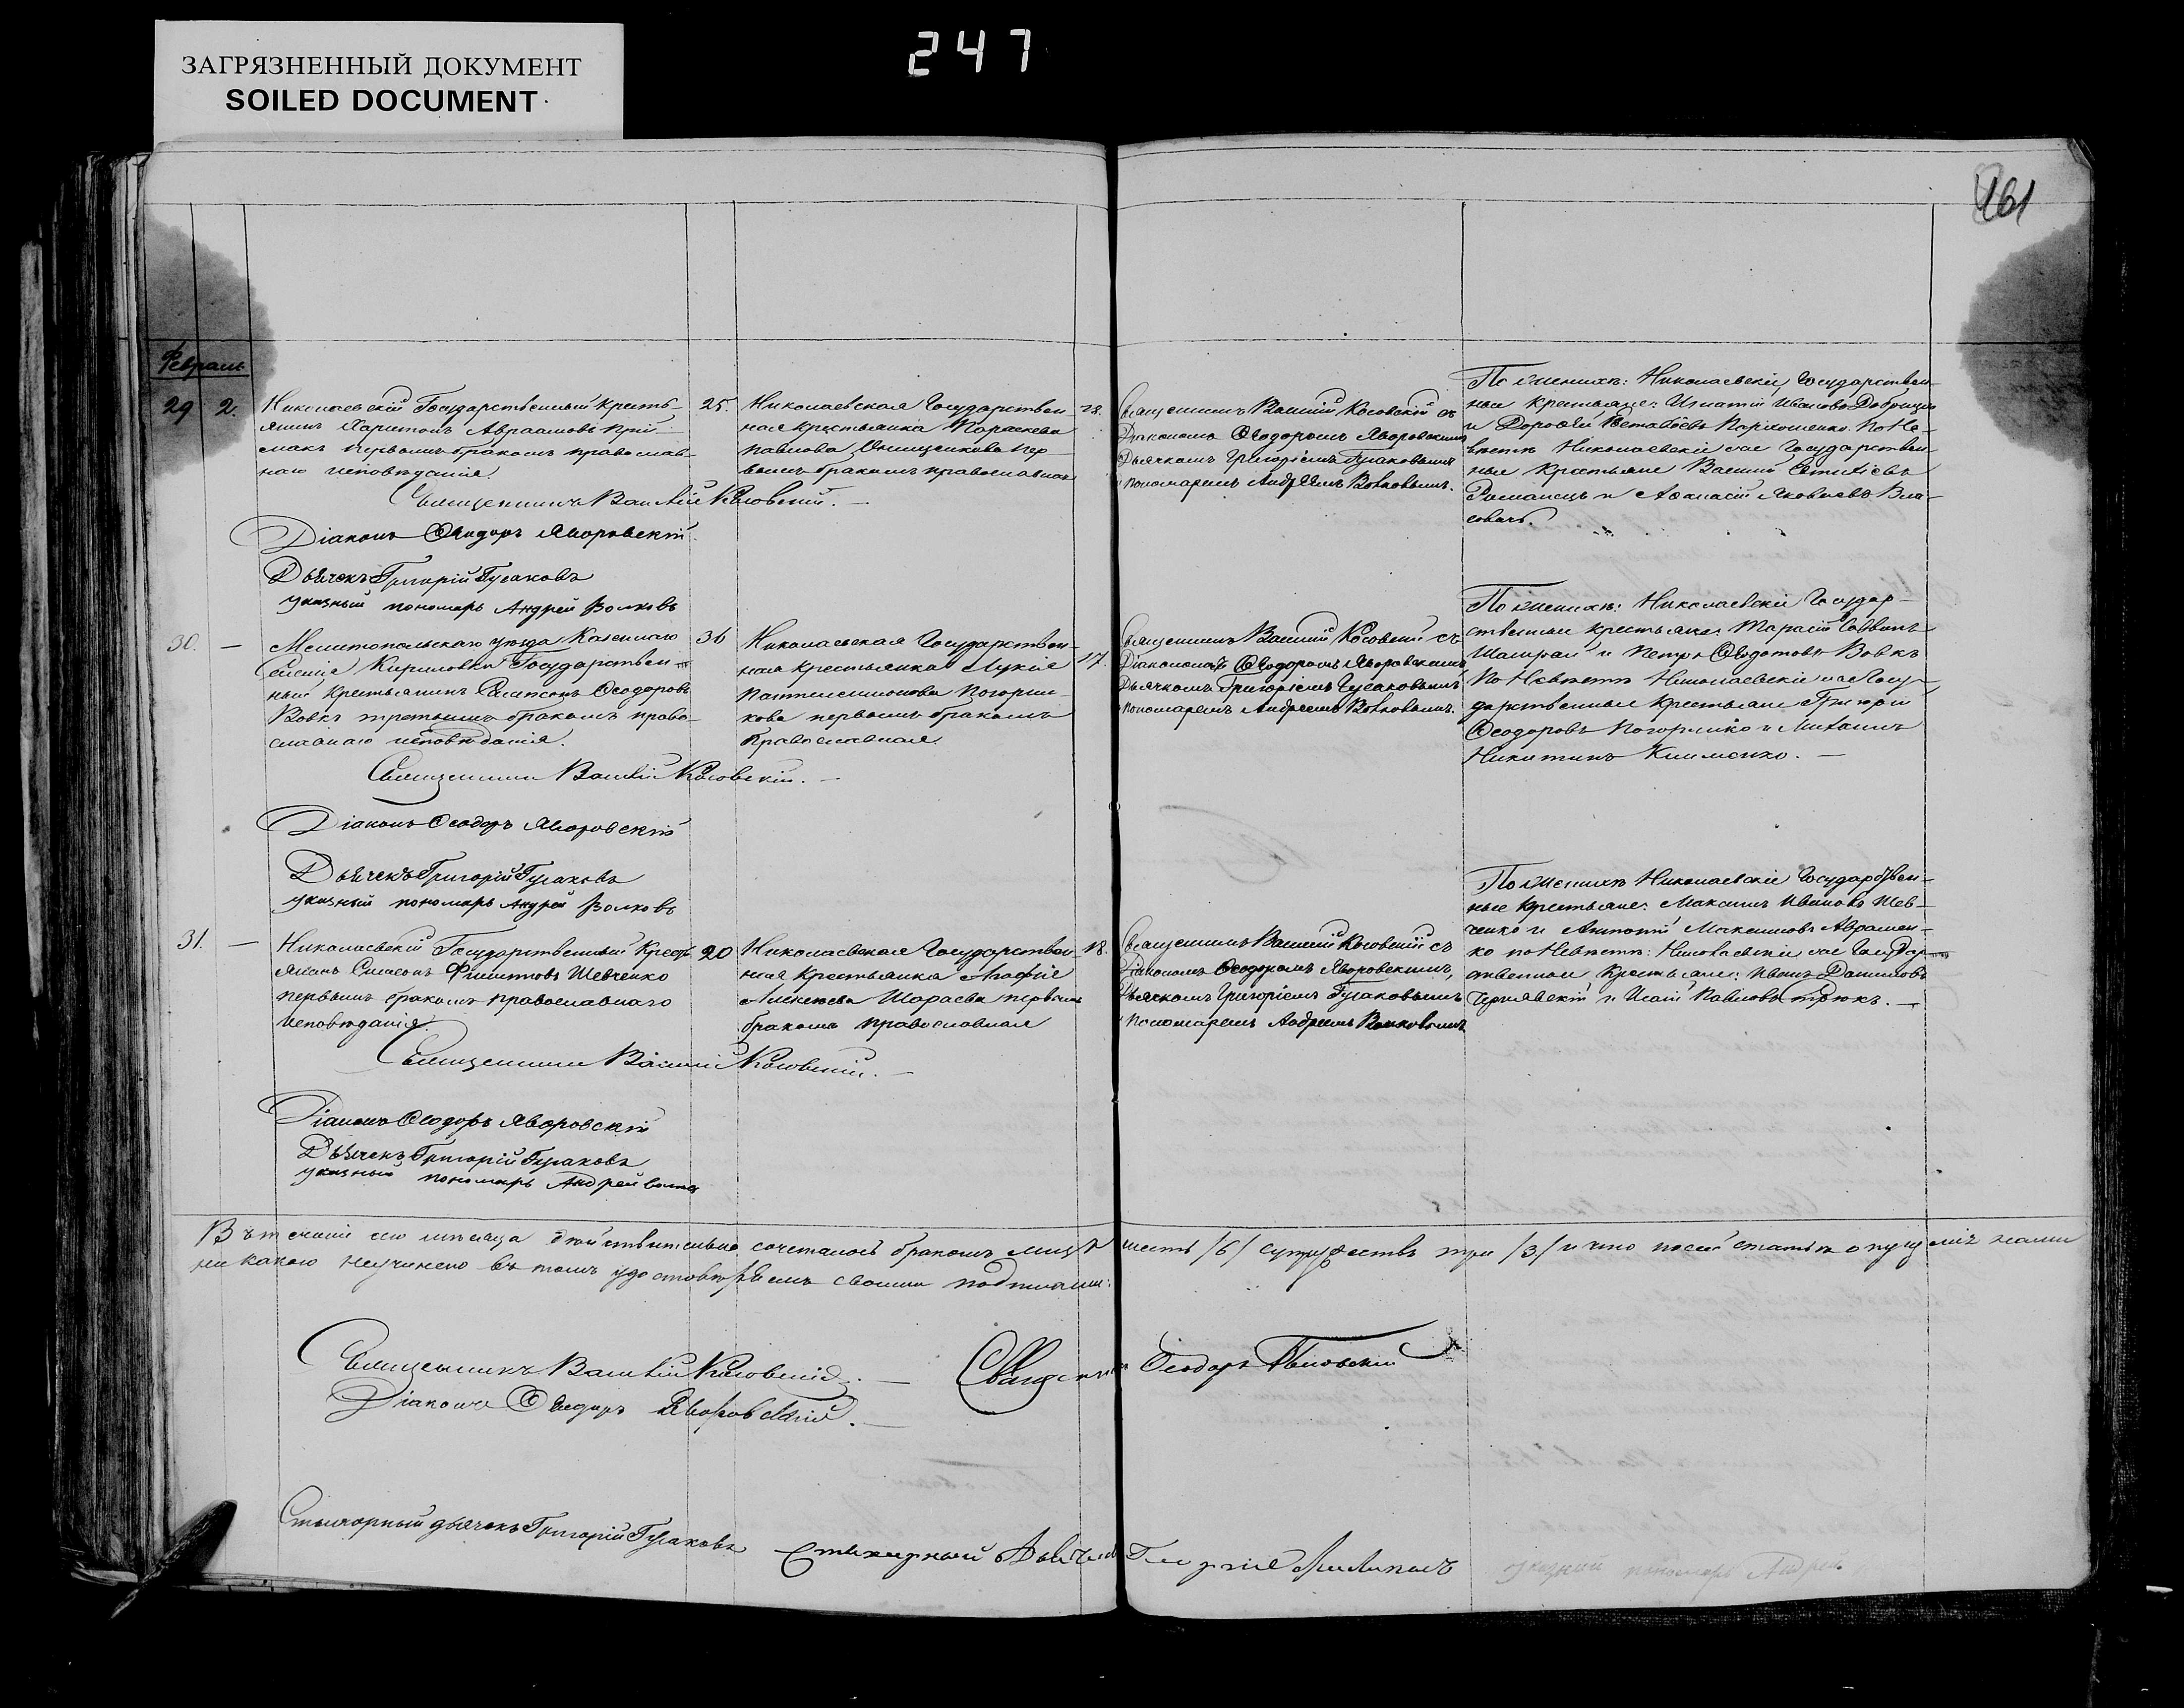 ЗАГРЯЗНЕННЫЙ ДОКУМЕНТ
SOILED DOCUMENT
247
161
Февраль
29 2.
Николаевскій Государственный кресть-
янинъ Харитонъ Авраамовъ При-
макъ первымъ бракомъ православ-
наго исповѣданія.
25.
Николаевская Государствен-
ная крестьянка Параскева
Павлова Онищенкова пер-
вымъ бракомъ православная
Священникъ Василій Косовскій съ
Діакономъ Ѳеодоромъ Яворовскимъ
Дьячкомъ Григоріемъ Гусаковымъ
и пономаремъ Андреемъ Волковымъ.
По женихѣ: Николаевскіе Государствен-
ные крестьяне: Игнатій Ивановъ
и Дороѳей Пархоменко. По Не-
вѣстѣ Николаевскіе Государствен-
ные крестьяне Василій
Романецъ и Аѳанасій Яковлевъ Вла-
совъ.
Священникъ Василій Косовскій.
Діаконъ Ѳеодоръ Яворовскій
Дьячекъ Григорій Гусаковъ
указный пономарь Андрей Волковъ
30. —
Мелитопольскаго уѣзда Казеннаго
селенія Кириловки Государствен-
ный крестьянинъ Самсонъ Ѳеодоровъ
Вовкъ третьимъ бракомъ право-
славнаго исповѣданія.
Николаевская Государствен-
ная крестьянка Лукія
Пантелеимонова Погорил-
кова первымъ бракомъ
Православная
17.
Священникъ Василій Косовскій съ
Діакономъ Ѳеодоромъ Яворовскимъ
Дьячкомъ Григоріемъ Гусаковымъ
и пономаремъ Андреемъ Волковымъ.
По женихѣ: Николаевскіе Государ-
ственные крестьяне: Тарасій Саввинъ
и Петръ Ѳедотовъ Вовкъ
По Невѣстѣ Николаевскіе Госу-
дарственные крестьяне Григорій
Ѳеодоровъ Погорилко и Михаилъ
Никитинъ Клименко. —
Священникъ Василій Косовскій. —
Діаконъ Ѳеодоръ Яворовскій
Дьячекъ Григорій Гусаковъ
указный пономарь Андрей Волковъ
31. —
Николаевскій Государственный Крест-
янинъ Симеонъ Филиповъ Шевченко
первымъ бракомъ православнаго
исповѣданія.
20
Николаевская Государствен-
ная крестьянка Агафія
Алексѣева Шараева первымъ
бракомъ православная
18.
Священникъ Василій Косовскій съ
Діакономъ Ѳеодоромъ Яворовскимъ,
Дьячкомъ Григоріемъ Гусаковымъ
и Пономаремъ Андреемъ Волковымъ
По женихѣ Николаевскіе Государствен-
ные крестьяне: Максимъ Ивановъ Шев-
ченко и Антоній Максимовъ Аврамен-
ко по Невѣстѣ: Николаевскіе Государ-
ственные крестьяне: Иванъ Даниловъ
Чернявскій и Исаій Павловъ —
Священникъ Василій Косовскій. —
Діаконъ Ѳеодоръ Яворовскій
Дьячекъ Григорій Гусаковъ
указный пономарь Андрей
Въ теченіи сего мѣсяца дѣйствительно сочеталось бракомъ лицъ шесть /6/ супружествъ три /3/ и что по сей статьѣ опущенія нами
никакого неучинено въ томъ удостовѣряемъ своими подписями.
Священникъ Василій Косовскій. — Священникъ Ѳеодоръ
Діаконъ Ѳеодоръ Яворовскій. —
Стихарный дьячекъ Григорій Гусаковъ Стихарный Дьячекъ Георгій
указный пономарь Андрей